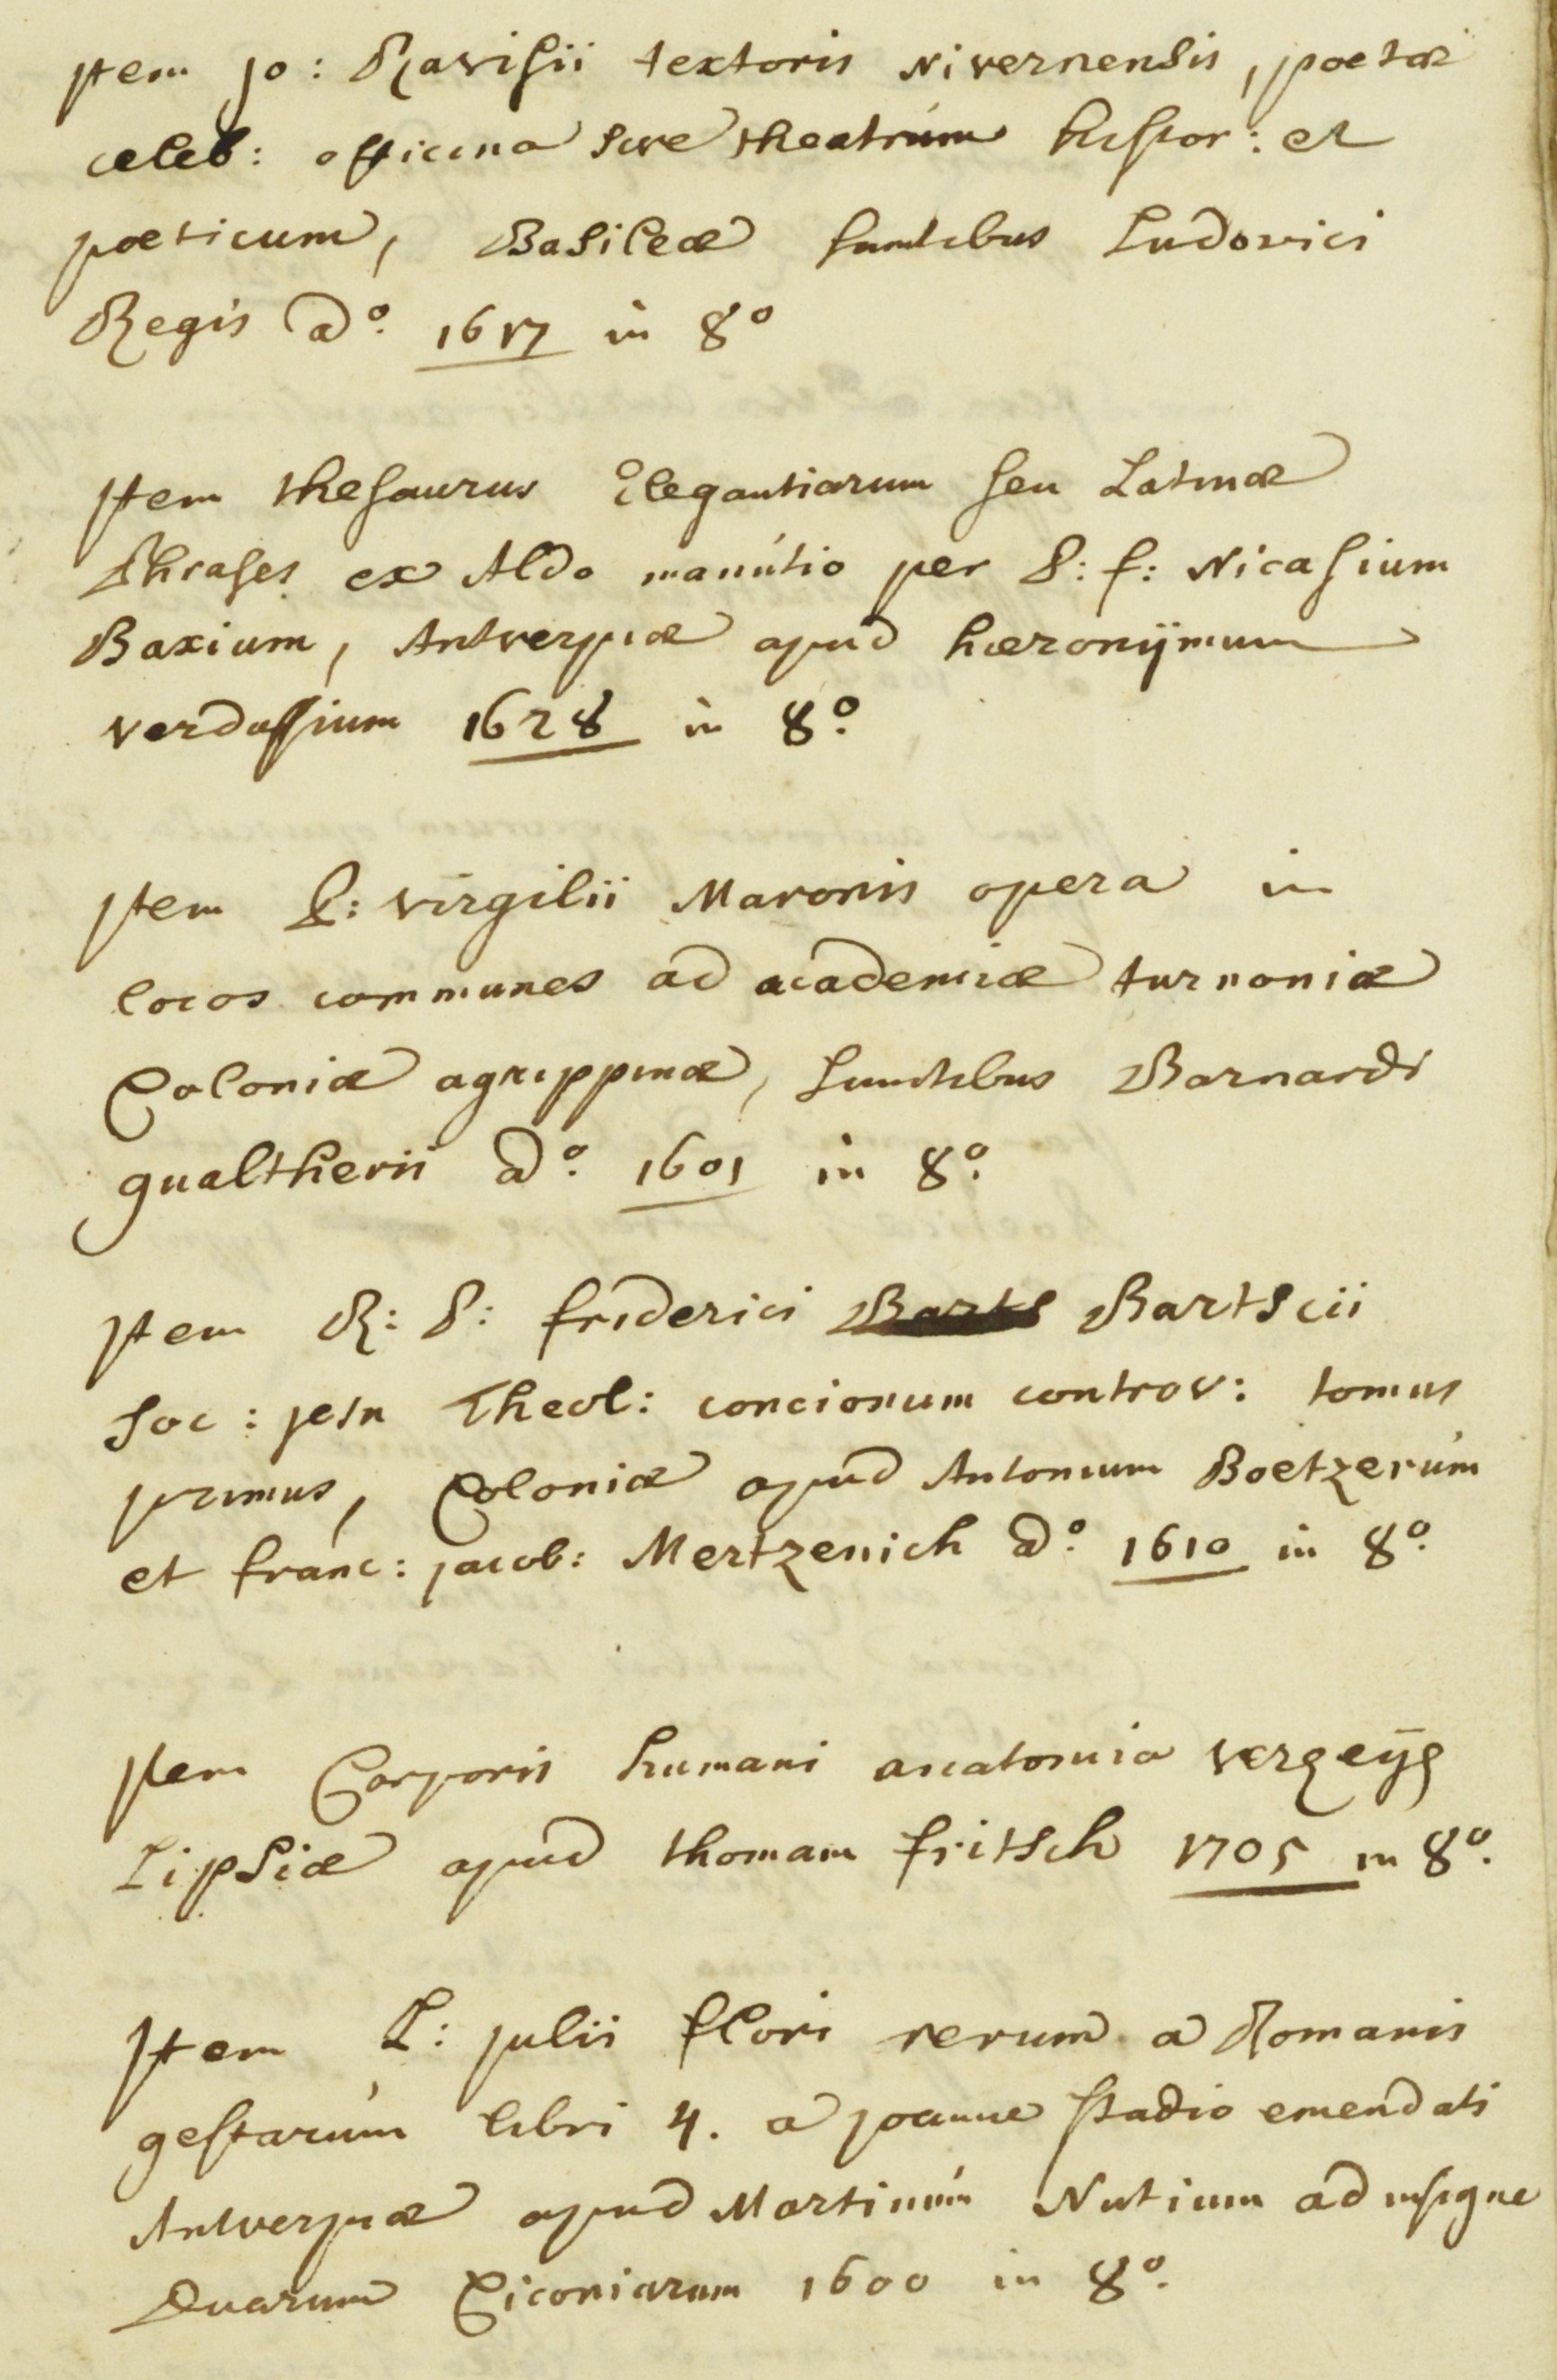 Item Jo: Ravisii textoris Nivernensis, poetæ
celeb: officina sive theatrúm histor: et
poeticum, Basileæ sumtibus Ludovici
Regis aº. 1617 in 8º
Item thesaurus Elegantiarum seu Latinæ
Phrases ex Aldo manútio per P: f: Nicasium
Baxium, Antverpiæ apud hieronÿmum
verdussium 1628 in 8º.
Item P: virgilii Maronis opera in
locos communes ad academiæ turnoniæ
Coloniæ agrippinæ, sumtibus Barnardi
gualtherii aº. 1601 in 8º.
Item R: P: friderici Barts Bartscii
Soc: jesu Theol: concionum controv: tomus
primus, Coloniæ apud Antonium Boetzerúm
et franc: jacob: Mertzenich aº. 1610 in 8º.
Item Corporis humani anatomia verheÿe
Lipsiæ apud thomam fritsch 1705 in 8º.
Item L: julii flori rerum a Romanis
gestarúm libri 4. a joanne stadio emendati
Antverpiæ apud Martinúm Nutium ad insigne
Duarum Ciconiarum 1600 in 8º.